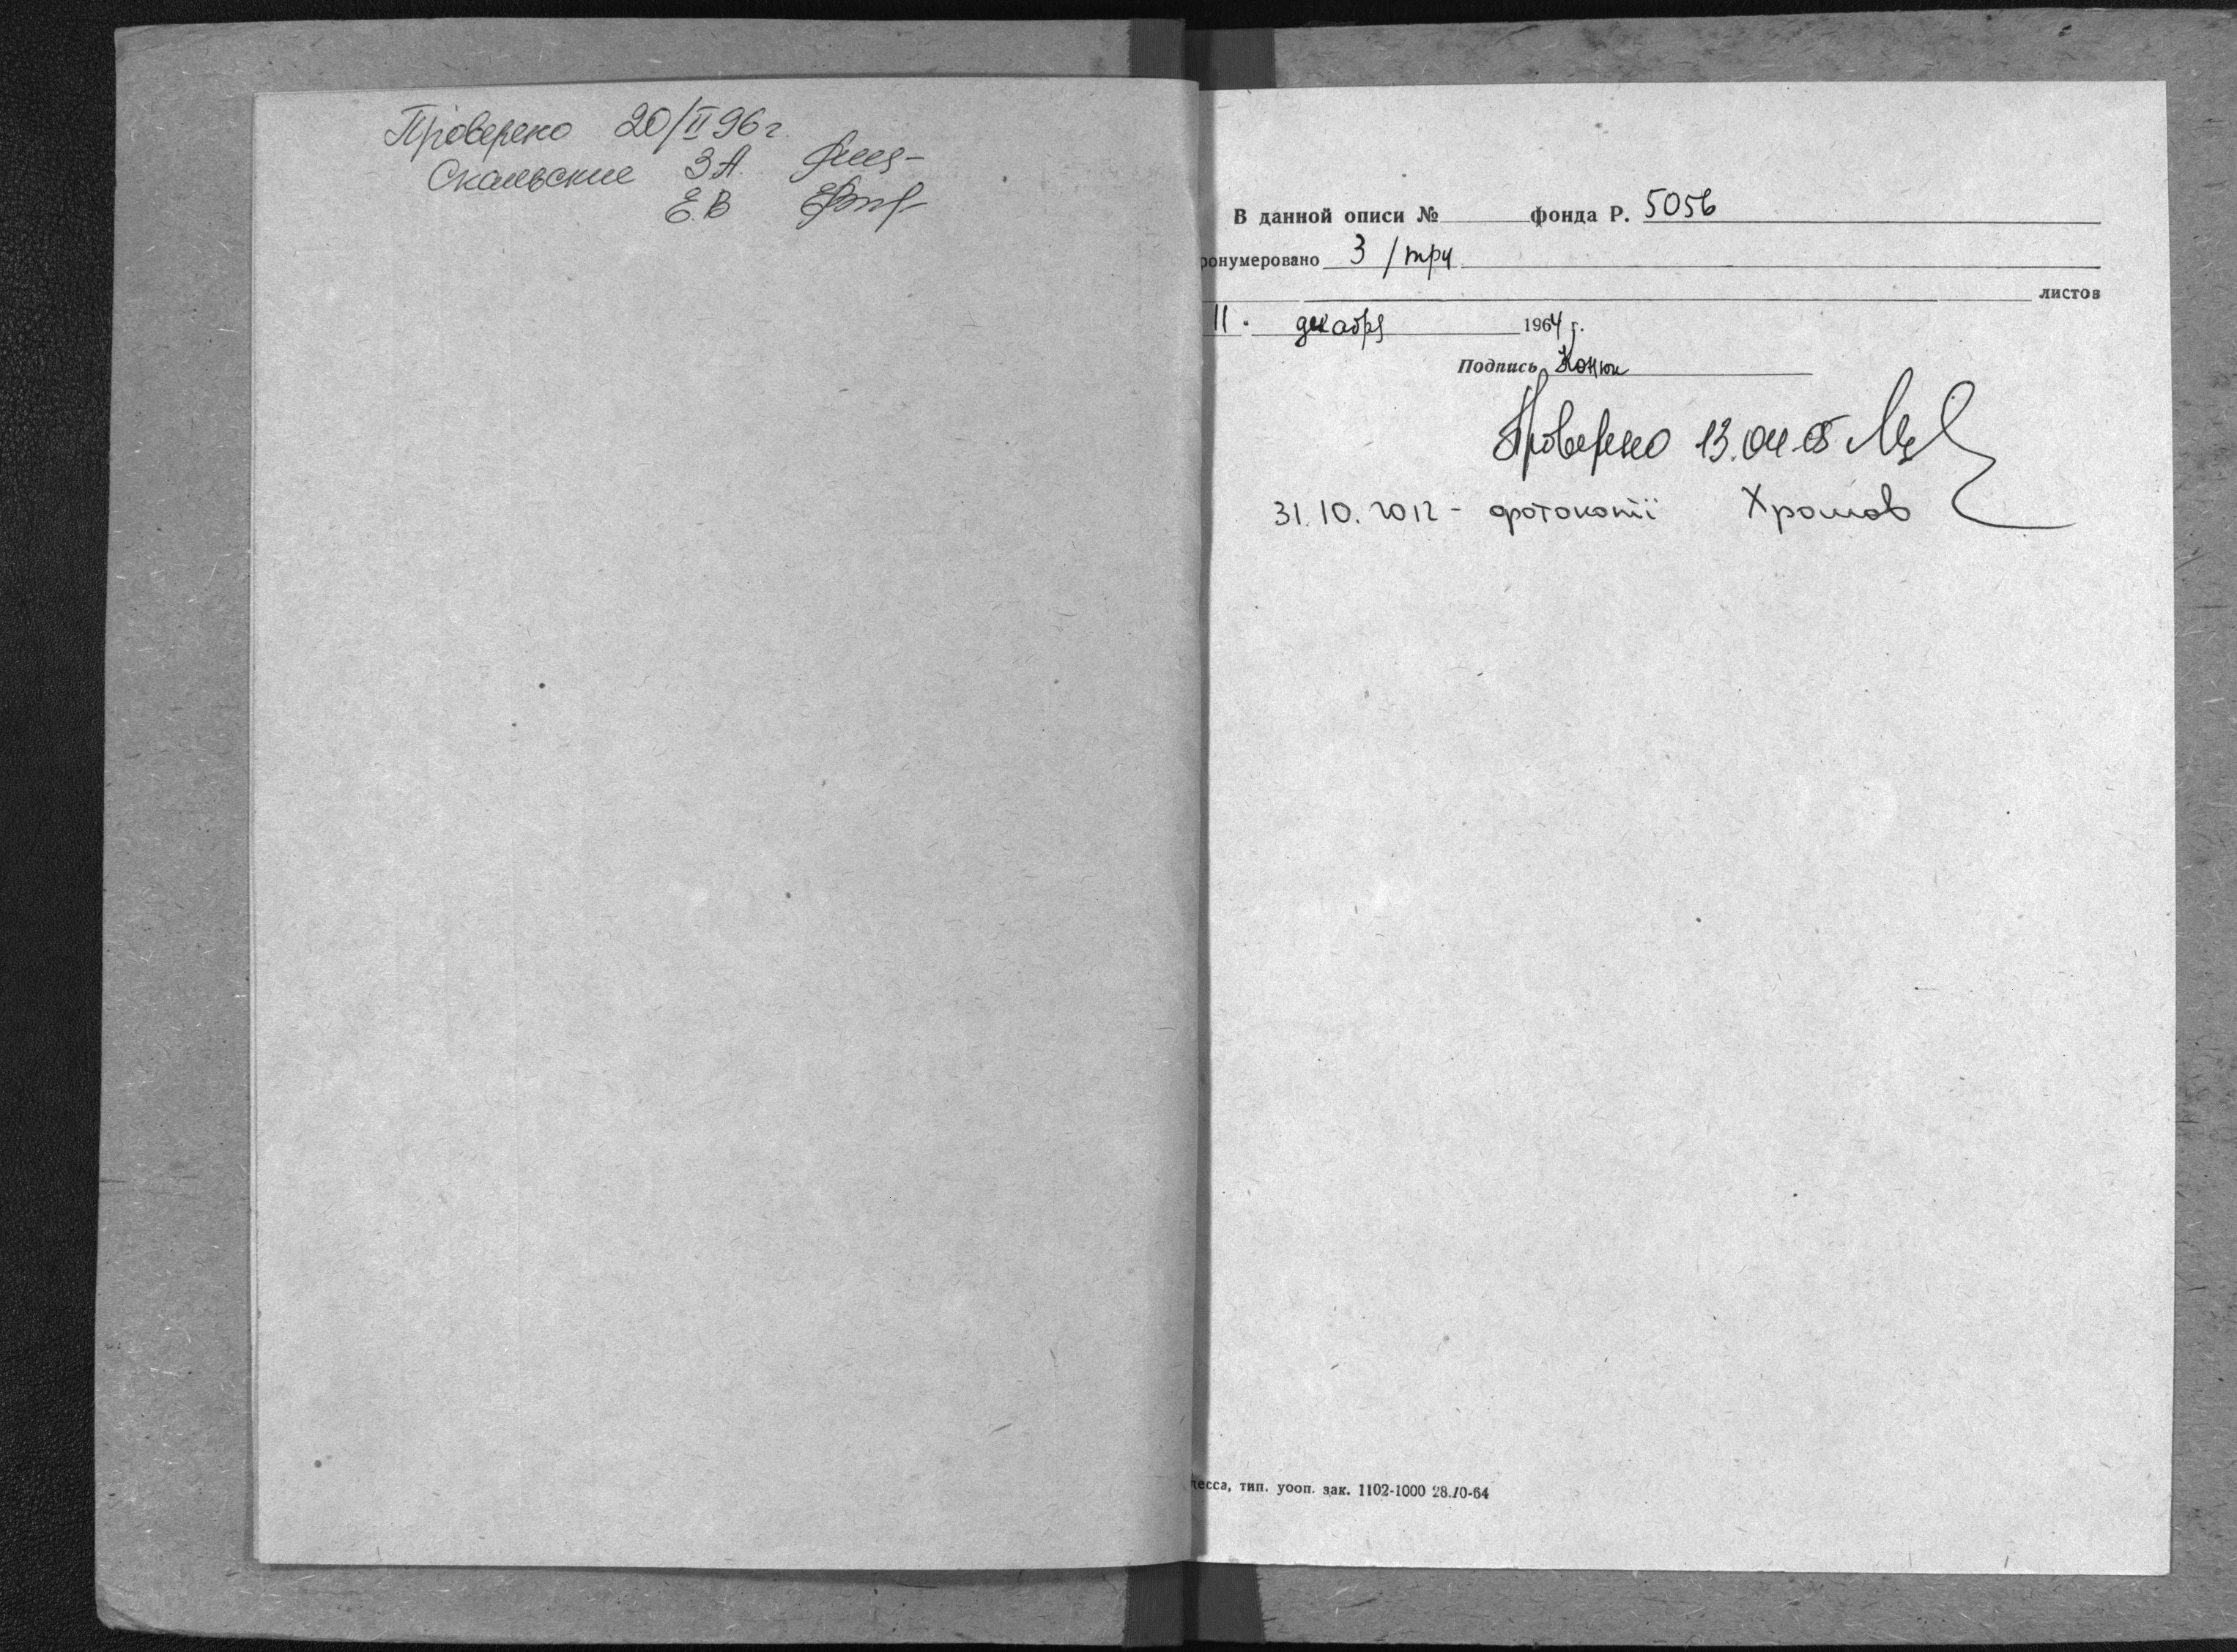 Проверено 20/II 96 г.
Скальские З.А.
Е.В
В данной описи № фонда Р. 5056
ронумеровано 3 /три
листов
11 декабря 1964 г.
Подпись Конюк
Проверено 13.04.05
31.10.2012 - фотокопії Хромов
десса, тип. уооп. зак. 1102-1000 28.10-64